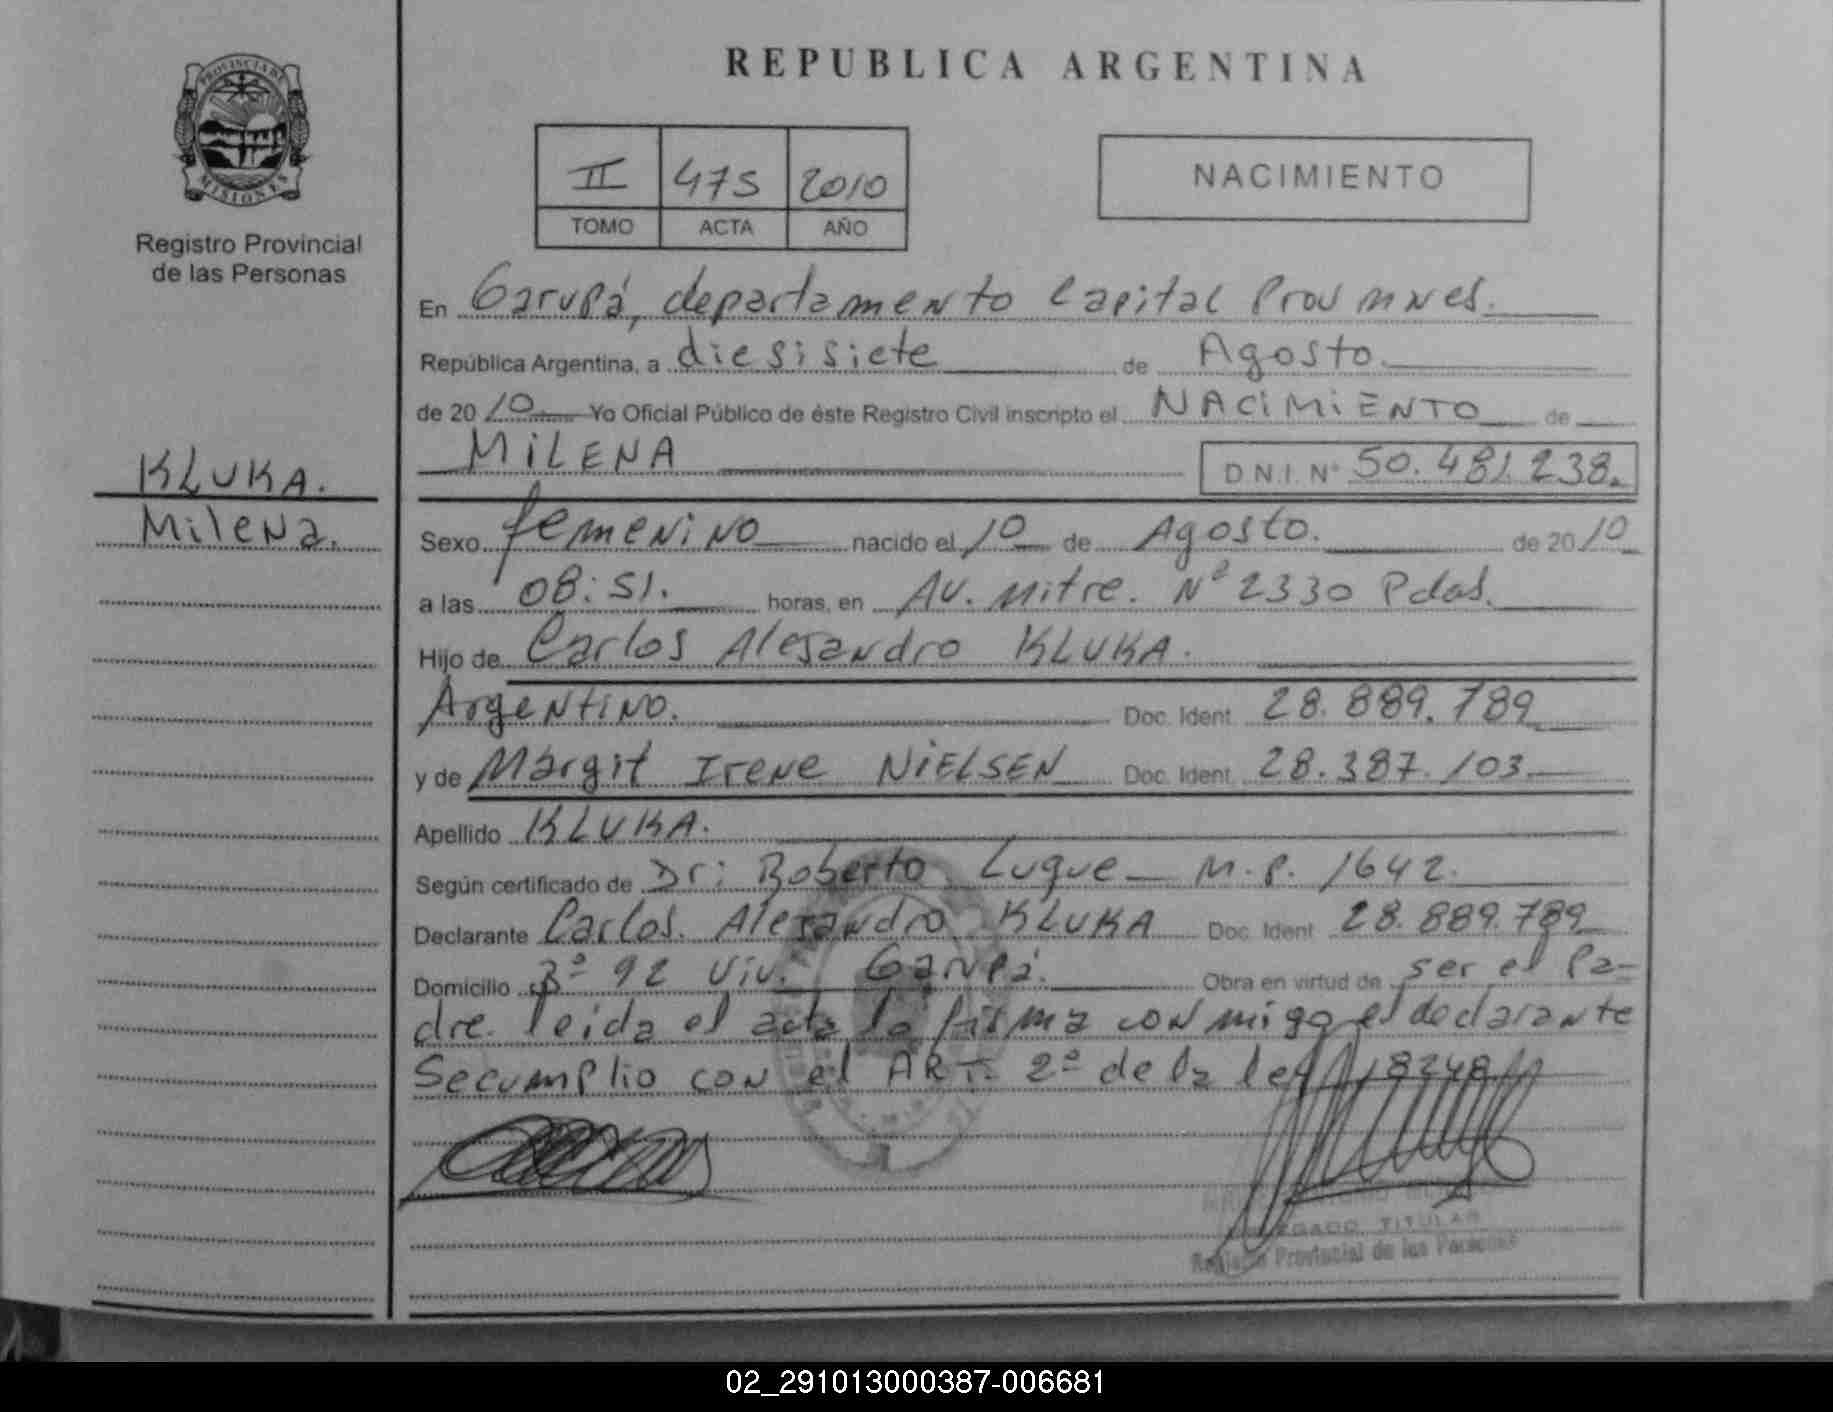 PROVINCIA DE
MISIONES
Registro Provincial
de las Personas
KLUKA.
Milena.
REPUBLICA ARGENTINA
II 475 2010
TOMO ACTA AÑO
NACIMIENTO
En Garupá, departamento Capital Prov mnes.
República Argentina, a diesisiete de Agosto.
de 2010 Yo Oficial Público de éste Registro Civil inscripto el NACiMiENTO de
MiLENA D.N.I. Nº 50.481.238.
Sexo femenino nacido el 10 de Agosto. de 2010
a las 08:51. horas, en Av. Mitre. Nº 2330 Pdas.
Hijo de Carlos Alejandro KLUKA.
Argentino. Doc. Ident. 28.889.789
y de Margit Irene NiELSEN Doc. Ident. 28.387.103.
Apellido KLUKA.
Según certificado de Dr: Roberto Luque M.P. 1642.
Declarante Carlos. Alejandro KLUKA Doc. Ident. 28.889.789
Domicilio Bº 92 Viv. Garupá. Obra en virtud de ser el Pa-
dre. leida el acta la firma con migo el declarante
Secumplio con el ART. 2º de la ley 18248
DELEGADO TITULAR
Registro Provincial de las Personas
02_291013000387-006681